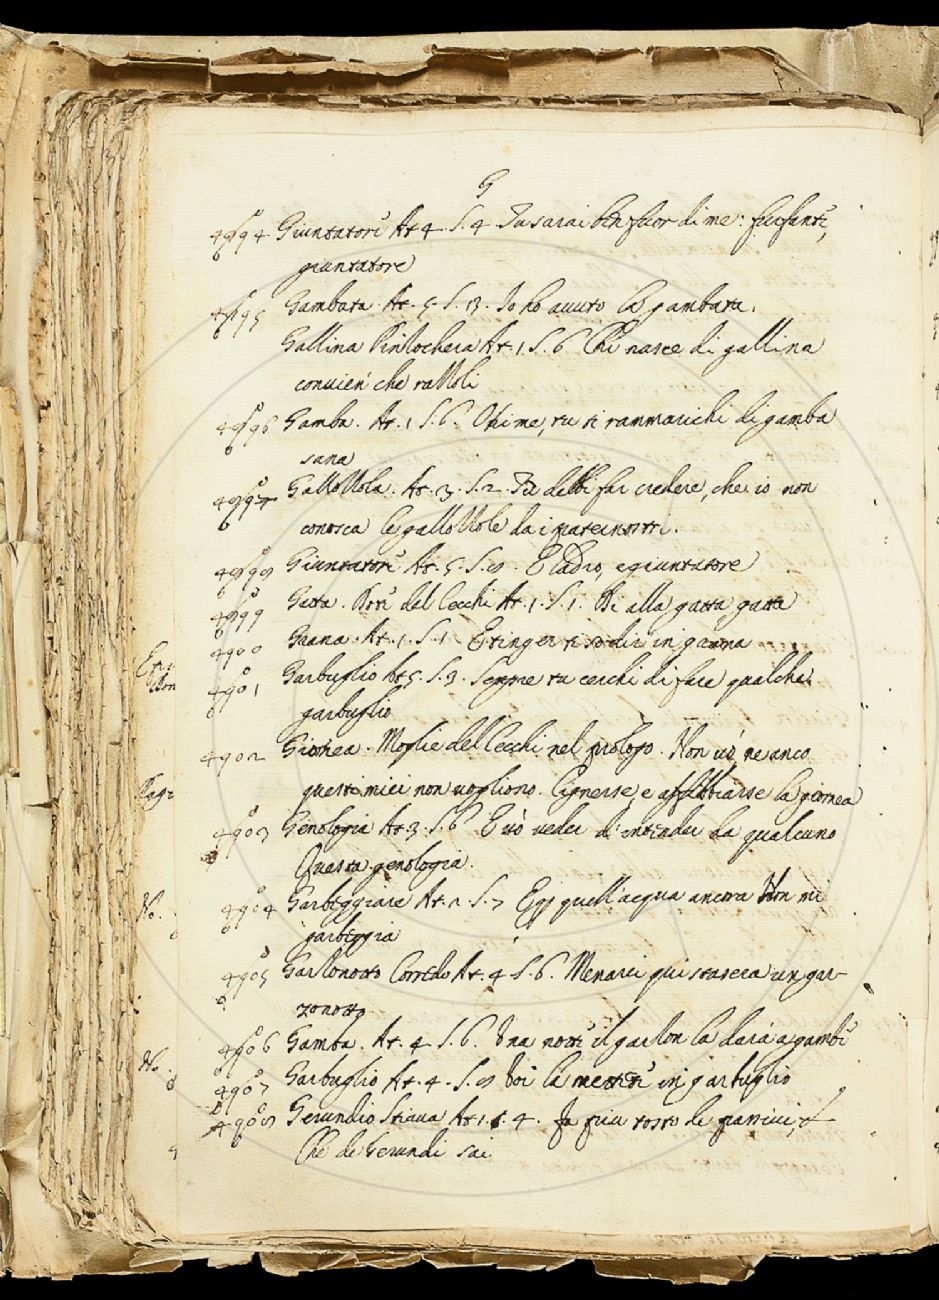 G
4894 Giuntatori At. 4. S. 4. Tu sarai ben fuor di me: furfanti,
giuntatore
4895 Gambata. At. 5. S. 13. Io ho avuto la gambata.
Gallina Pinzochera At. 1. S. 6. Chi nasce di gallina
convien che razzoli
4896 Gamba. At. 1. S. 6. Ohime, tu ti rammarichi di gamba
sana
4897 Gallozzola. At. 3. S. 2. Tu debbi far credere, che io non
conosca le gallozzole da i
4898 Giuntatori At. 5. S. 8. E ladro, e giuntatore
4899 Gatta. Doti del Cecchi At. 1. S. 1. Di alla gatta gatta
4900 Grana. At. 1. S. 1. E tinger ti so dir in grana
4901 Garbuglio At. 5. S. 3. Sempre tu cerchi di fare qualche
garbuglio
4902 Giornea. Moglie del Cecchi nel prologo. Non vo' ne anco
questi miei non vogliono. Cignerse, e affibbiarse la giornea
4903 Genologia At. 3. S. 6. E vo veder d'intender da qualcuno
Questa genologia.
4904 Garbeggiare At. S. 7 quell'acqua ancora Non mi
garbeggia
4905 Garzonotto Corredo At. 4. S. 6. Menarci qui stasera un gar-
zonotto
4906 Gamba. At. 4. S. 6. Una notte il garzon la darà a gambe
4907 Garbuglio At. 4. S. 8 Voi la mettete in garbuglio
4908 Gerundio Stiava At. 1. S. 4. Fa piu tosto de passivi,
Che de Gerundi sai
No.
No.